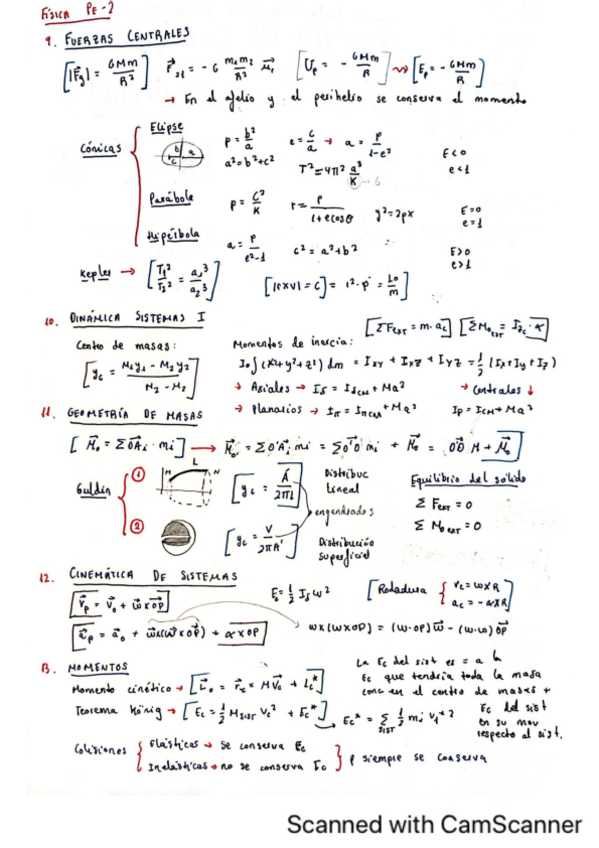 FÍSICA PE-2
9. FUERZAS CENTRALES
[|F⃗g| = GMm/R²] F⃗21 = -G m1m2/R² u⃗r [Up = - GMm/R] ⟿ [Ep = - GMm/R]
→ En el afelio y el perihelio se conserva el momento
Cónicas
Elipse
b a c
p = b²/a e = c/a → a = p/1-e² E<0
a² = b²+c² T² = 4π² a³/K → G e<1
Parábola p = C²/K r = p/1+e cosθ y² = 2px E=0 e=1
Hipérbola a = p/e²-1 c² = a²+b² E>0 e>1
Kepler → [T1²/T2² = a1³/a2³] [|r×v| = C] = r²·φ̇ = Lo/m]
10. DINÁMICA SISTEMAS I [ΣFext = m·ac] [ΣMo ext = Izc·α]
Centro de masas: Momentos de inercia:
[yc = M1y1 - M2y2/M1-M2] Io ∫(x²+y²+z²) dm = Ixy + Ixz + Iyz = 1/2 (Ix+Iy+Iz)
→ Axiales → Is = Iscm + Ma² → Centrales ↓
→ Planarios → Iπ = Iπcm + Ma² Ip = Icm + Ma²
11. GEOMETRÍA DE MASAS
[M⃗o = ΣO⃗Ai·mi] → M⃗o' = ΣO'A⃗i mi = ΣO'O⃗ mi + M⃗o = O'O⃗ M + M⃗o]
Guldin
① L M N [yc = A/2πL] Distribuc Lineal
engendrados
② [yc = V/2πA] Distribución superficial
Equilibrio del sólido
Σ Fext = 0
Σ Mo ext = 0
12. CINEMÁTICA DE SISTEMAS
[v⃗p = v⃗o + ω⃗×op] Ec = 1/2 Is ω² [Rodadura { vc = ω×R ac = -α×R]
[a⃗p = a⃗o + ω×(ω×op) + α×op] ω×(ω×op) = (ω·op)ω⃗ - (ω·ω) op⃗
13. MOMENTOS
Momento cinético → [L⃗o = r⃗c × M v⃗c + Lc*]
Teorema König → [Ec = 1/2 Msist vc² + Ec*] Ec* = Σsist 1/2 mi vi*²
La Ec del sist es = a la
Ec que tendría toda la masa
conc en el centro de masas +
Ec del sist
en su mov
respecto al sist.
Colisiones { Elásticas → se conserva Ec
Inelásticas → no se conserva Ec } p siempre se conserva
Scanned with CamScanner